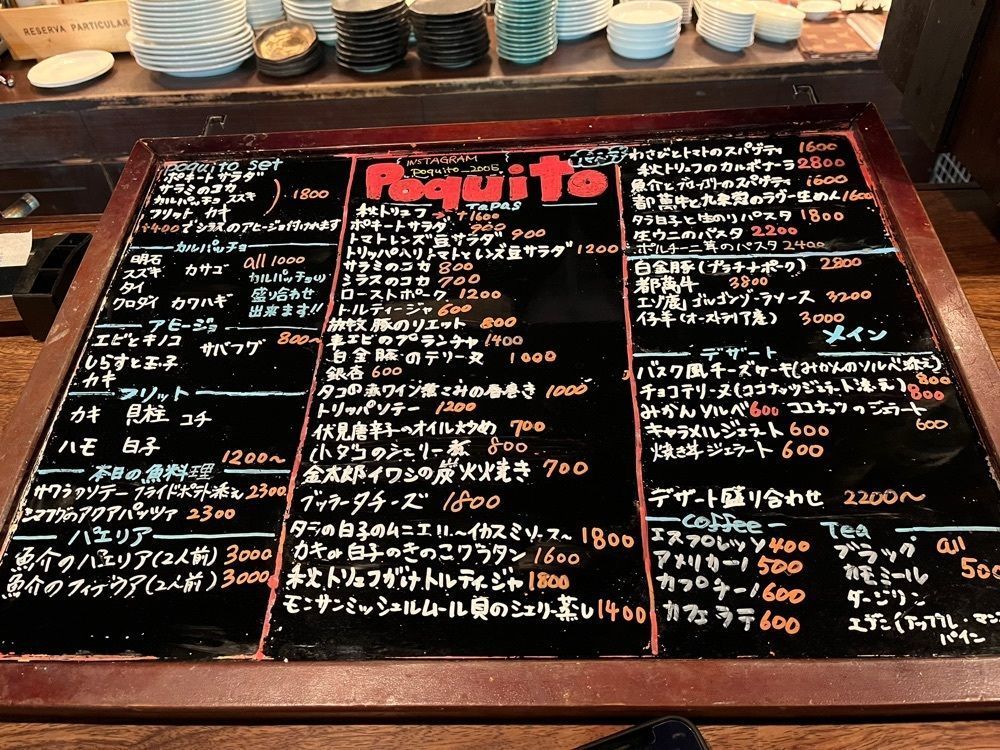 RESERVA PARTICULAR
Poquito set
ポキートサラダ
サラミのコカ
カルパッチョ スズキ
フリット カキ
1800
+400でシラスのアヒージョ付けれます
カルパッチョ
明石 all 1000
スズキ カサゴ
タイ
クロダイ カワハギ
カルパッチョの
盛り合わせ
出来ます!!
アヒージョ
エビとキノコ サバフグ 800~
しらすと玉子
カキ
フリット
カキ 貝柱 コチ
ハモ 白子
1200~
本日の魚料理
サワラのソテー フライドポテト添え 2300
アクアパッツァ 2300
パエリア
魚介のパエリア(2人前) 3000
魚介のフィデウア(2人前) 3000
INSTAGRAM
Poquito_2005
Poquito
TAPAS
秋トリュフ 1600
ポキートサラダ 900
トマトレンズ豆サラダ 900
トリッパ入りトマトとレンズ豆サラダ 1200
サラミのコカ 800
シラスのコカ 700
ローストポーク 1200
トルティージャ 600
放牧豚のリエット 800
車エビのプランチャ 1400
白金豚のテリーヌ 1000
銀杏 600
タコの赤ワイン煮こみの春巻き 1000
トリッパソテー 1200
伏見唐辛子のオイル炒め 700
小ダコのシェリー煮 800
金太郎イワシの炭火焼き 700
ブッラータチーズ 1800
タラの白子のムニエル~イカスミソース~ 1800
カキの白子のきのこグラタン 1600
秋トリュフがけトルティージャ 1800
モンサンミッシェルムール貝のシェリー蒸し 1400
わさびとトマトのスパゲティ 1600
秋トリュフのカルボナーラ 2800
魚介とブロッコリのスパゲティ 1600
都萬牛と九条葱のラグー生めん 1600
タラ白子と生のりパスタ 1800
生ウニのパスタ 2200
ポルチーニ茸のパスタ 2400
白金豚(プラチナポーク) 2800
都萬牛 3800
エゾ鹿 ゴルゴンゾーラソース 3200
仔羊(オーストラリア産) 3000
メイン
デザート
バスク風チーズケーキ(みかんのソルベ添え) 800
チョコテリーヌ(ココナッツジェラート添え) 800
みかんソルベ 600 ココナッツのジェラート 600
キャラメルジェラート 600
焼き芋ジェラート 600
デザート盛り合わせ 2200~
Coffee
エスプレッソ 400
アメリカーノ 500
カプチーノ 600
カフェラテ 600
Tea
ブラック all
カモミール 500
ダージリン
エデン(アップル・マンゴ
パイン